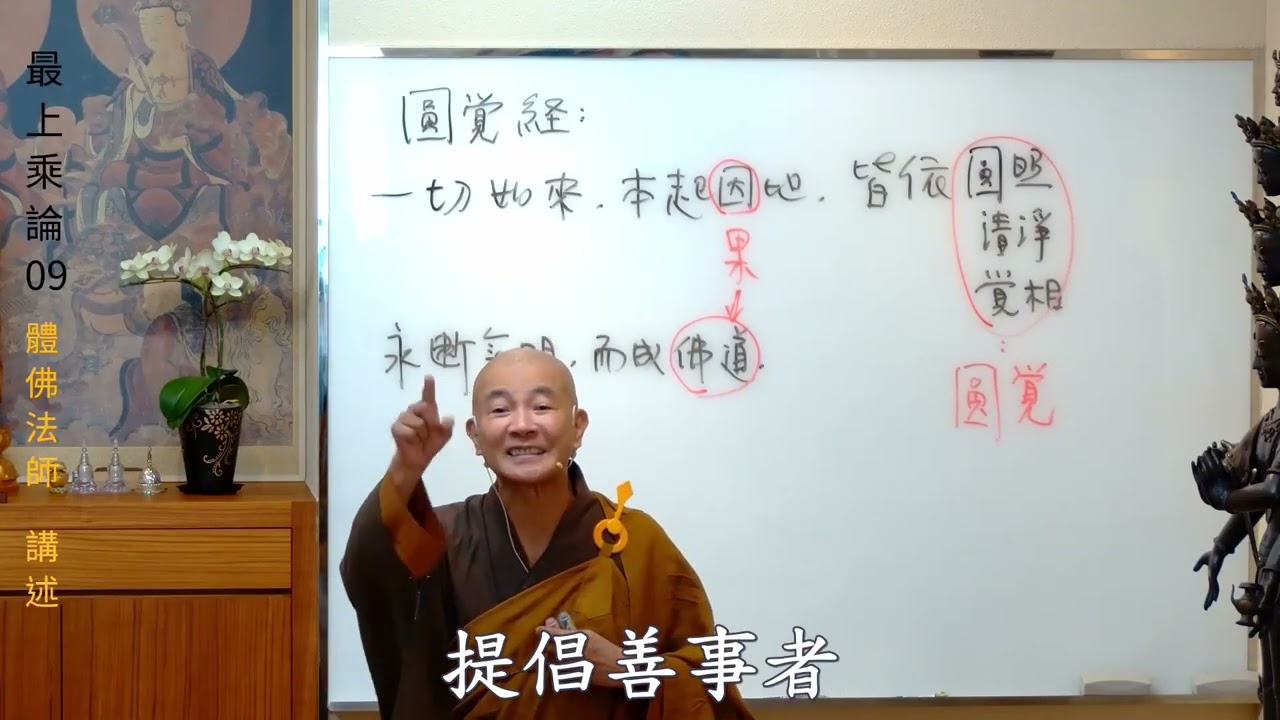 最上乘論09 體佛法師 講述
圓覚経:
一切如來.本起因地.皆依圓照
清淨
覚相
果
:
圓覚
永斷無明.而成佛道.
提倡善事者